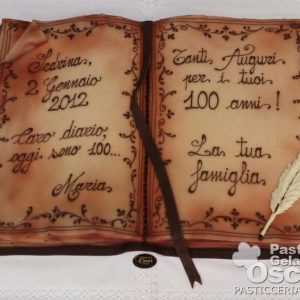 Sedrina,
2 Gennaio
2012
Caro diario,
oggi sono 100...
Maria
Tanti Auguri
per i tuoi
100 anni!
La tua
famiglia
Past
Gela
Osc
PASTICCERIA